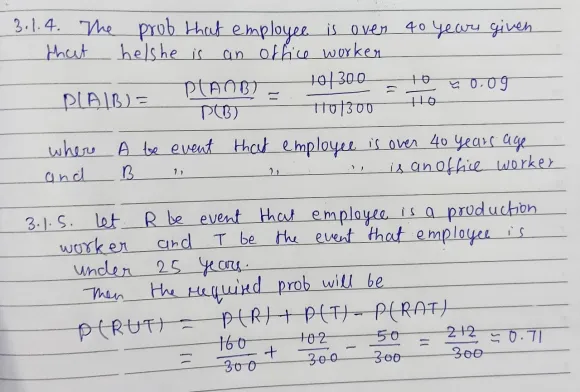 3.1.4. The prob that employee is over 40 years given
that he/she is an office worker
P(A|B) = P(A∩B) / P(B) = 10/300 / 110/300 = 10 / 110 ≈ 0.09
where A be event that employee is over 40 years age
and B ,, ,, ,, is an office worker
3.1.5. let R be event that employee is a production
worker and T be the event that employee is
under 25 years.
Then the required prob will be
P(RUT) = P(R) + P(T) - P(R∩T)
= 160/300 + 102/300 - 50/300 = 212/300 ≈ 0.71